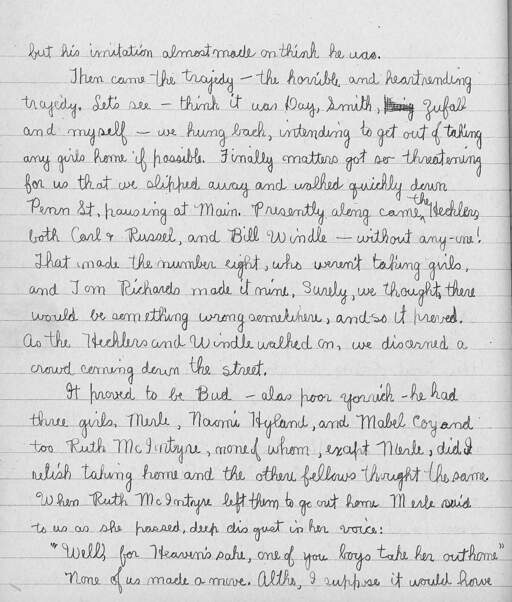 but his imitation almost made on think he was.
Then came the tragedy — the horrible and heartrending
tragedy. Let's see — think it was Day, Smith, Zufall
and myself — we hung back, intending to get out of taking
any girls home if possible. Finally matters got so threatening
for us that we slipped away and walked quickly down
Penn St, pausing at Main. Presently along came the Hechlers,
both Carl & Russel, and Bill Windle — without any-one!
That made the number eight, who weren't taking girls,
and Tom Richards made it nine. Surely, we thought, there
would be something wrong somewhere, and so it proved.
As the Hechlers and Windle walked on, we discerned a
crowd coming down the street.
It proved to be Bud — alas poor yorrich — he had
three girls, Merle, Naomi Hyland, and Mabel Coy and
too Ruth McIntyre, none of whom, exapt Merle, did I
relish taking home and the others fellows thought the same.
When Ruth McIntyre left them to go out home Merle said
to us as she passed, deep disgust in her voice:
"Well, for Heaven's sake, one of you boys take her out home"
None of us made a move. Altho, I suppose it would have